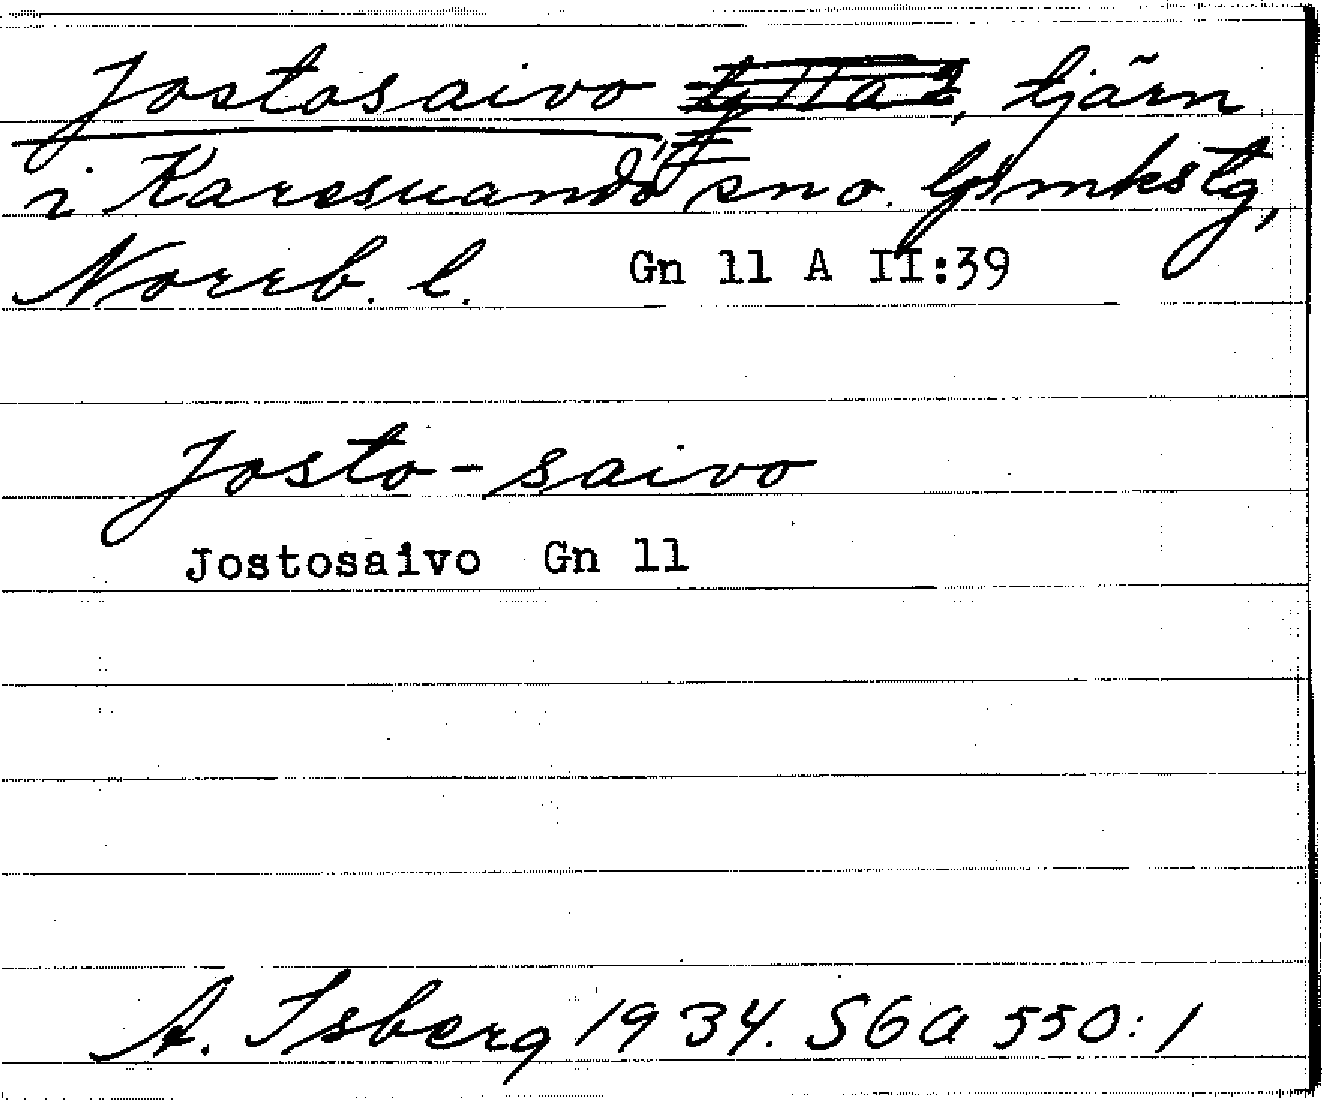 Jostosaivo, tjärn
i Karesuando sno. lpmkstg,
Norrb. l. Gn 11 A II:39
Josto-saivo
Jostosaivo Gn 11
A. Isberg 1934. SGA 550:1